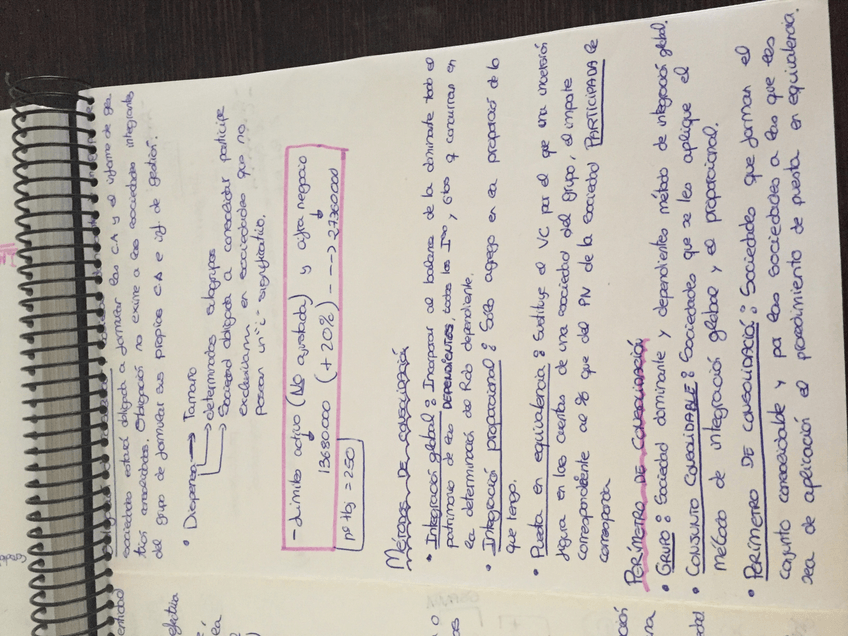 sociedades estará obligada a formular las CA y el informe de ges
tión consolidados. Obligación no exime a las sociedades integrantes
del grupo de formular sus propias CA e inf. de gestión.
• Dispensa → Tamaño
→ determinados subgrupos
→ Sociedad obligada a consolidar participe
exclusivam. en sociedades que no
posean un i- significativo.
- Límites activo (No ajustada) y cifra negocio
13680.000 (+20%) ---> 27360000
nº tbj = 250
MÉTODOS DE CONSOLIDACIÓN
• Integración global: Incorporar al balance de la dominante todo el
patrimonio de las DEPENDIENTES, todos los I y G, q concurran en
la determinación do Rdo dependiente.
• Integración proporcional: Solo agrego en la proporción de lo
que tengo.
• Puesta en equivalencia: Sustituye el VC por el que una inversión
figura en las cuentas de una sociedad del grupo, el importe
correspondiente al % que del PN de la sociedad PARTICIPADA le
corresponda
PERÍMETRO DE CONSOLIDACIÓN
• GRUPO: Sociedad dominante y dependientes método de integración global.
• CONSUNTO CONSOLIDABLE: Sociedades que se les aplique el
método de integración global y el proporcional.
• PERÍMETRO DE CONSOLIDACIÓ: Sociedades que forman el
conjunto consolidable y por las sociedades a las que les
sea de aplicación el procedimiento de puesta en equivalencia.
entidad